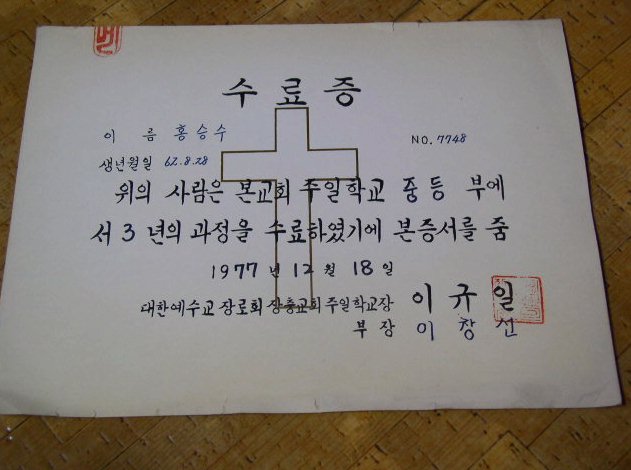 수료증
이 름 홍승수
NO. 7748
생년월일 62.8.28
위의 사람은 본교회 주일학교 중등 부에
서 3 년의 과정을 수료하였기에 본증서를 줌
1977 년 12 월 18 일
대한예수교 장로회 장충교회 주일학교장 이규일
부장 이창선